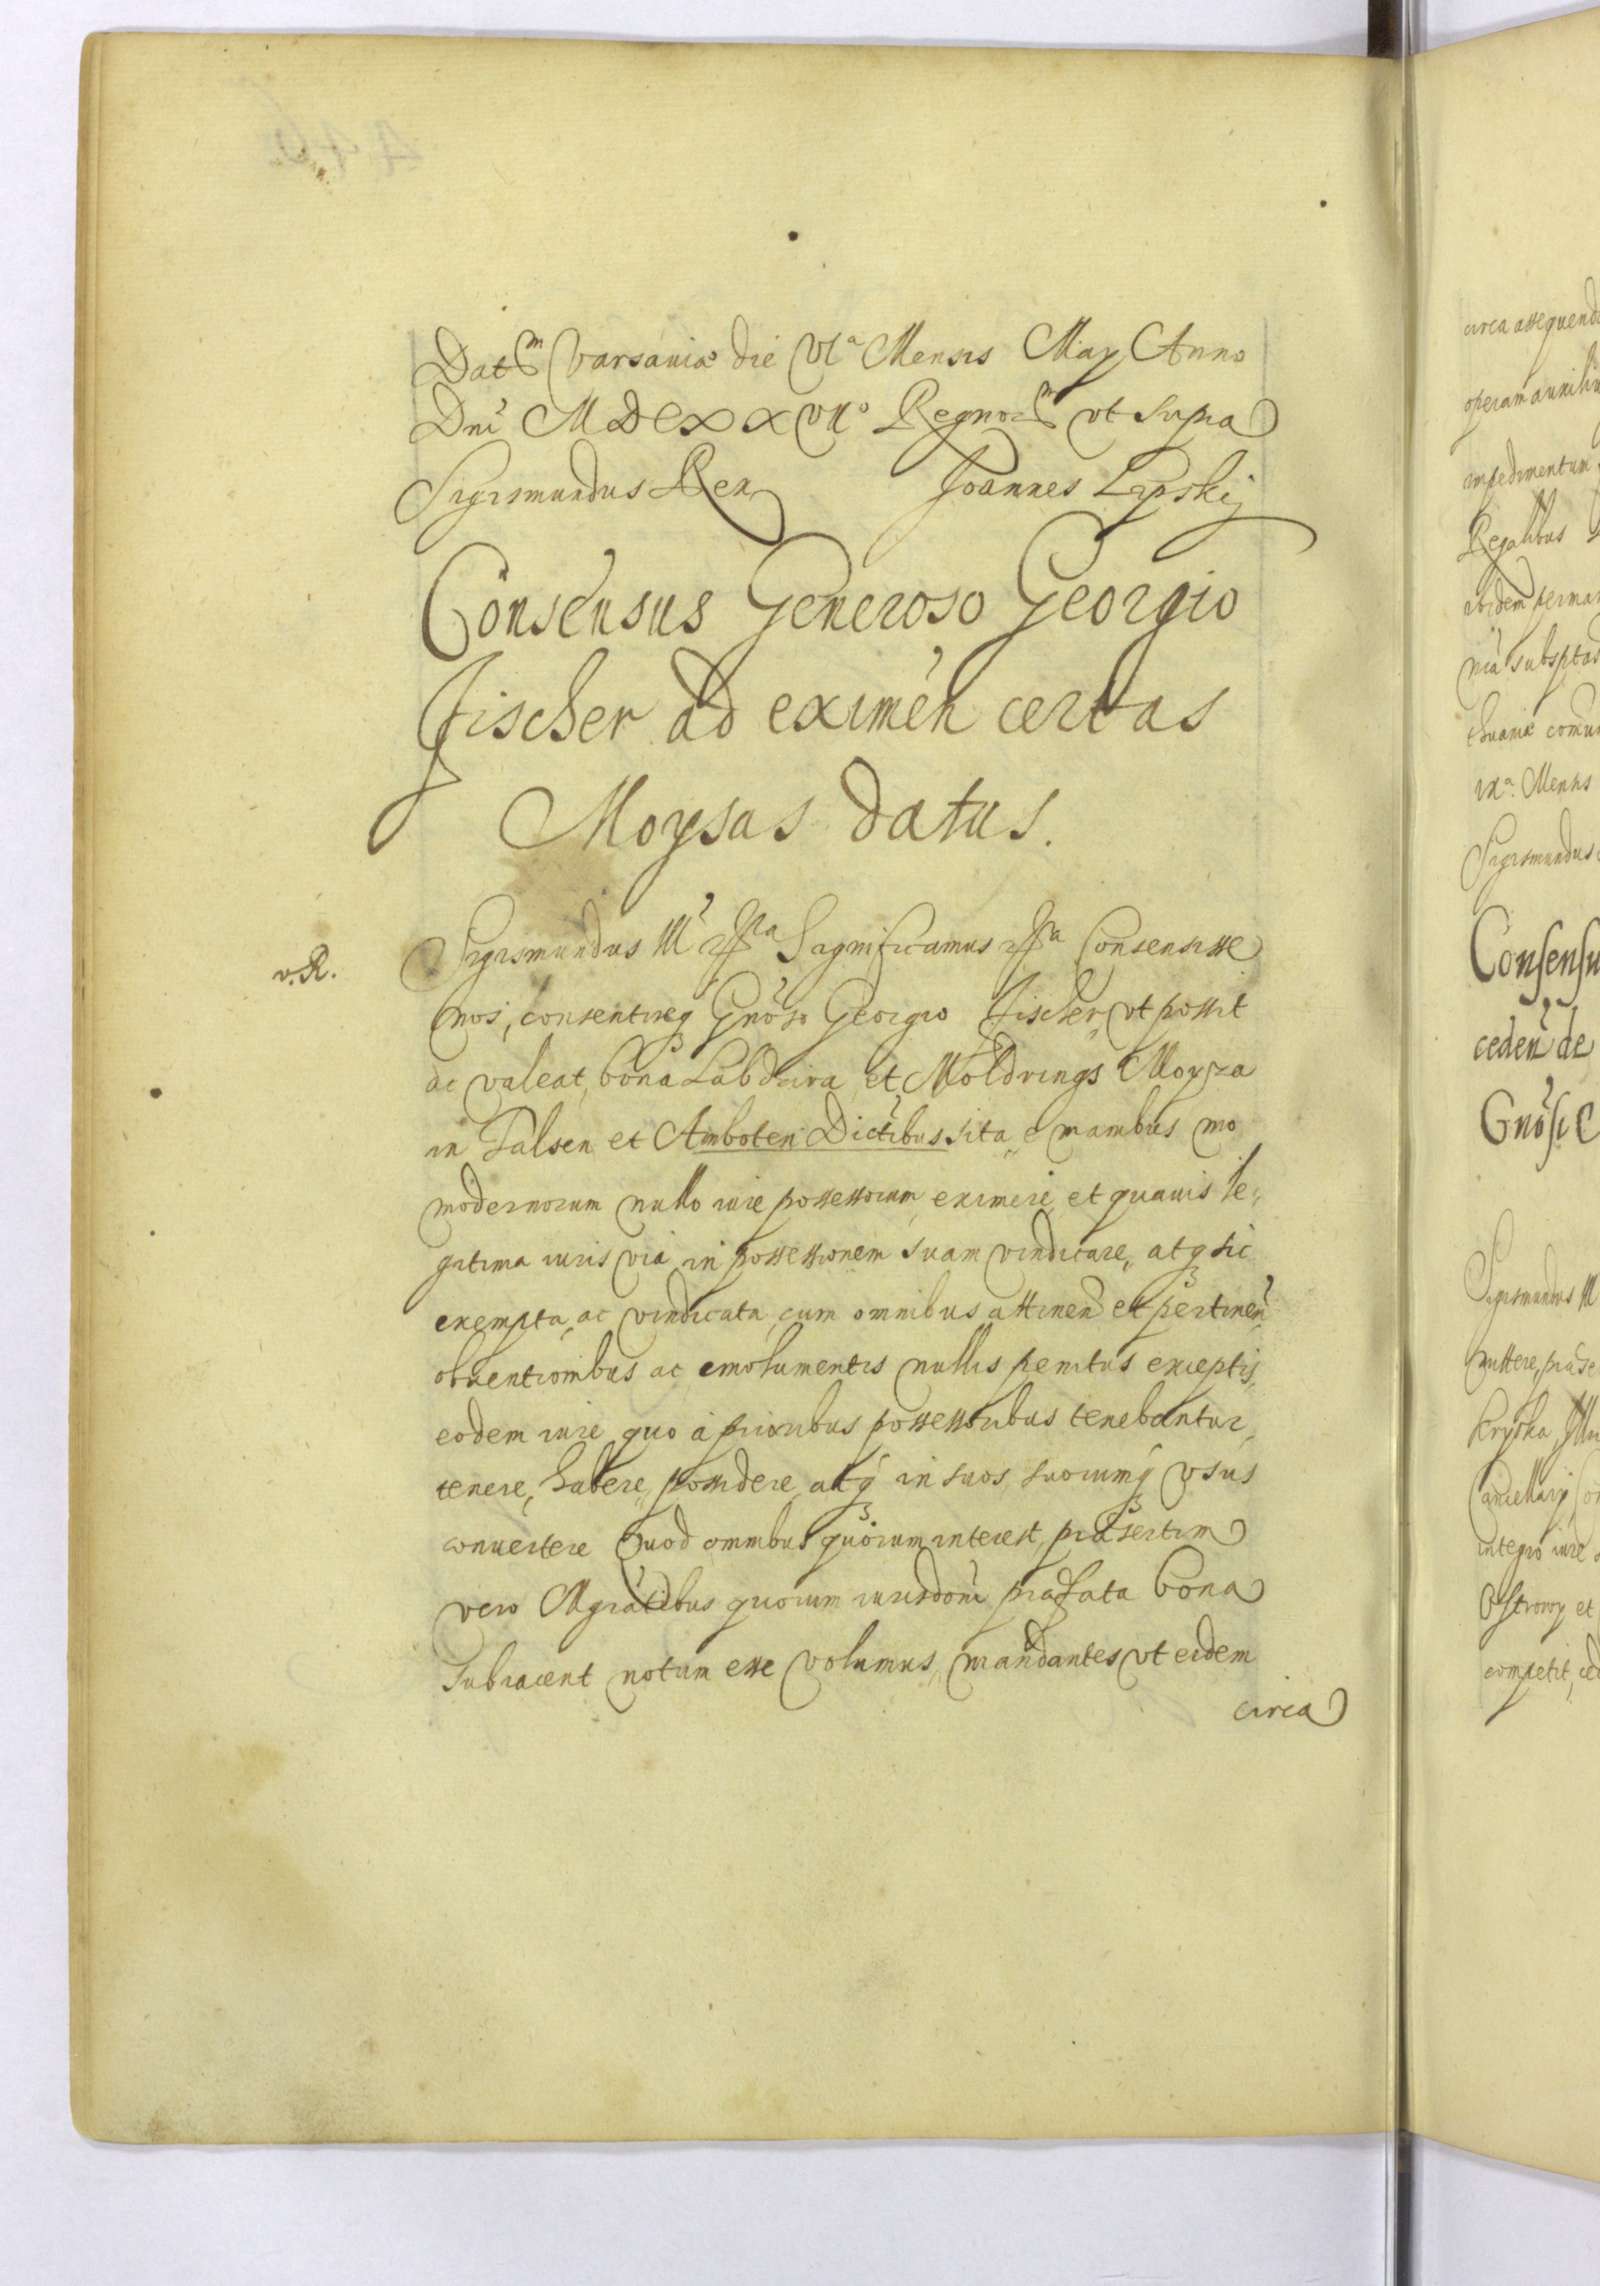 Datm Varsauiæ die VIa Mensis May Anno
Dni MDCXXVIIo Regnorm vt supra
Sigismundus Rex Joannes Lipskij
Consensus Generoso Georgio
Fischer ad eximen certas
Moysas datus.
v. R.
Sigismundus III Significamus Consensisse
nos, consentireq Gnoso Georgio Fischer, vt possit
ac valeat, bona Labdzira et Moldrings Moyza
in Talsen et Amboten Dictibus sita e manibus mo
modernorum nullo iure possessorum eximere et quauis le,,
gitima iuris via in possessionem suam vindicare, atq sic
exempta, ac vindicata, cum omnibus attinen et pertinen
obuentionibus ac emolumentis nullis penitus exceptis,
eodem iure quo à prioribus possessoribus tenebantur,
tenere, habere, possidere, atq in suos, suorumq vsus
conuertere Quod omnibus quorum interest, præsertim
vero Mgratibus quorum iurisdoni præfata bona
subiacent notum esse volumus, mandantes vt eidem
circa
circa assequend
operam auxiliu
impedimentum
Regalibus
ibidem perman
nia subsptas
thuaniæ comun
Mensis
Sigismundus
Consensu
ceden de
Gnosi C
Sigismundus III
mittere, præse
Kryska
Cancellarij
integro iure
Ostrovoy et
competit, ced